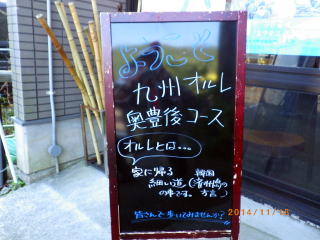 ようこそ
九州オルレ
奥豊後コース
オルレとは…
家に帰る
細い道
の事です。
韓国
(済州島の
方言)
皆さんで歩いてみませんか?
2014/11/